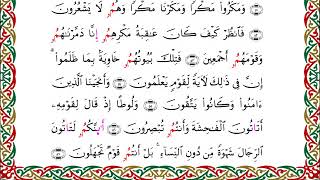 وَمَكَرُوا۟ مَكْرًا وَمَكَرْنَا مَكْرًا وَهُمُۥ لَا يَشْعُرُونَ
فَٱنظُرْ كَيْفَ كَانَ عَٰقِبَةُ مَكْرِهِمُۥ إِنَّا دَمَّرْنَٰهُمُۥ
وَقَوْمَهُمُۥ أَجْمَعِينَ فَتِلْكَ بُيُوتُهُمُۥ خَاوِيَةًۢ بِمَا ظَلَمُوا۟
إِنَّ فِى ذَٰلِكَ لَءَايَةً لِّقَوْمٍ يَعْلَمُونَ وَأَنجَيْنَا ٱلَّذِينَ
ءَامَنُوا۟ وَكَانُوا۟ يَتَّقُونَ وَلُوطًا إِذْ قَالَ لِقَوْمِهِۦ
أَتَأْتُونَ ٱلْفَٰحِشَةَ وَأَنتُمُۥ تُبْصِرُونَ أَىِٕنَّكُمُۥ لَتَأْتُونَ
ٱلرِّجَالَ شَهْوَةً مِّن دُونِ ٱلنِّسَآءِ بَلْ أَنتُمُۥ قَوْمٌ تَجْهَلُونَ